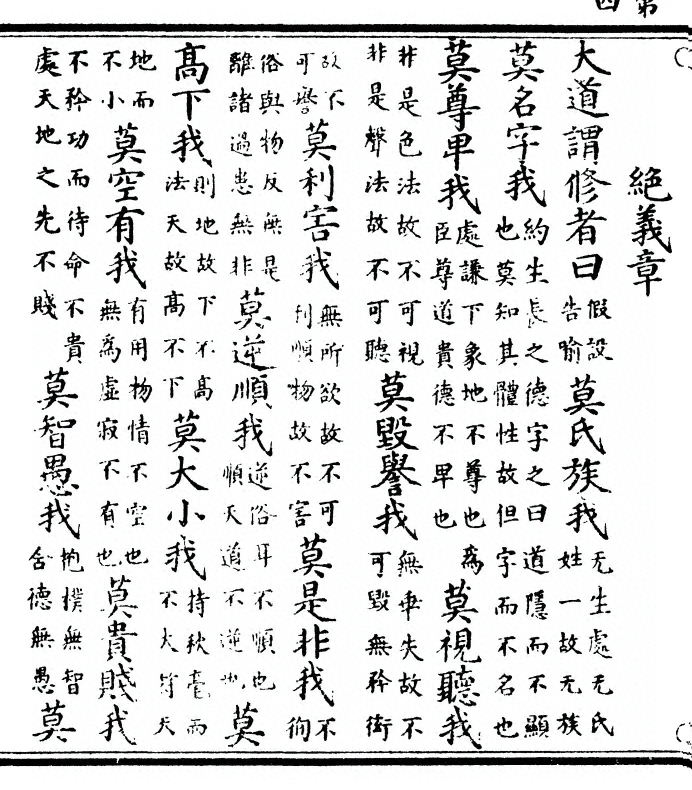 第四
絕義章
大道謂修者曰假設告喻莫氏族我无生處无氏姓一故无族
莫名字我約生長之德字之曰道隱而不顯也莫知其體性故但字而不名也
莫尊卑我處謙下象地不尊也為臣尊道貴德不卑也莫視聽我
非是色法故不可視非是聲法故不可聽莫毀譽我無事失故不可毀無矜衒
故不可譽莫利害我無所欲故不可利順物故不害莫是非我不徇
俗與物反無是雖諸過患無非莫逆順我逆俗耳不順也順天道不逆也莫
高下我則地故下不高法天故高不下莫大小我持秋毫而不大等天
地而不小莫空有我有用物情不空也無為虛寂不有也莫貴賤我
不矜功而待命不貴處天地之先不賤莫智愚我抱樸無智舍德無愚莫